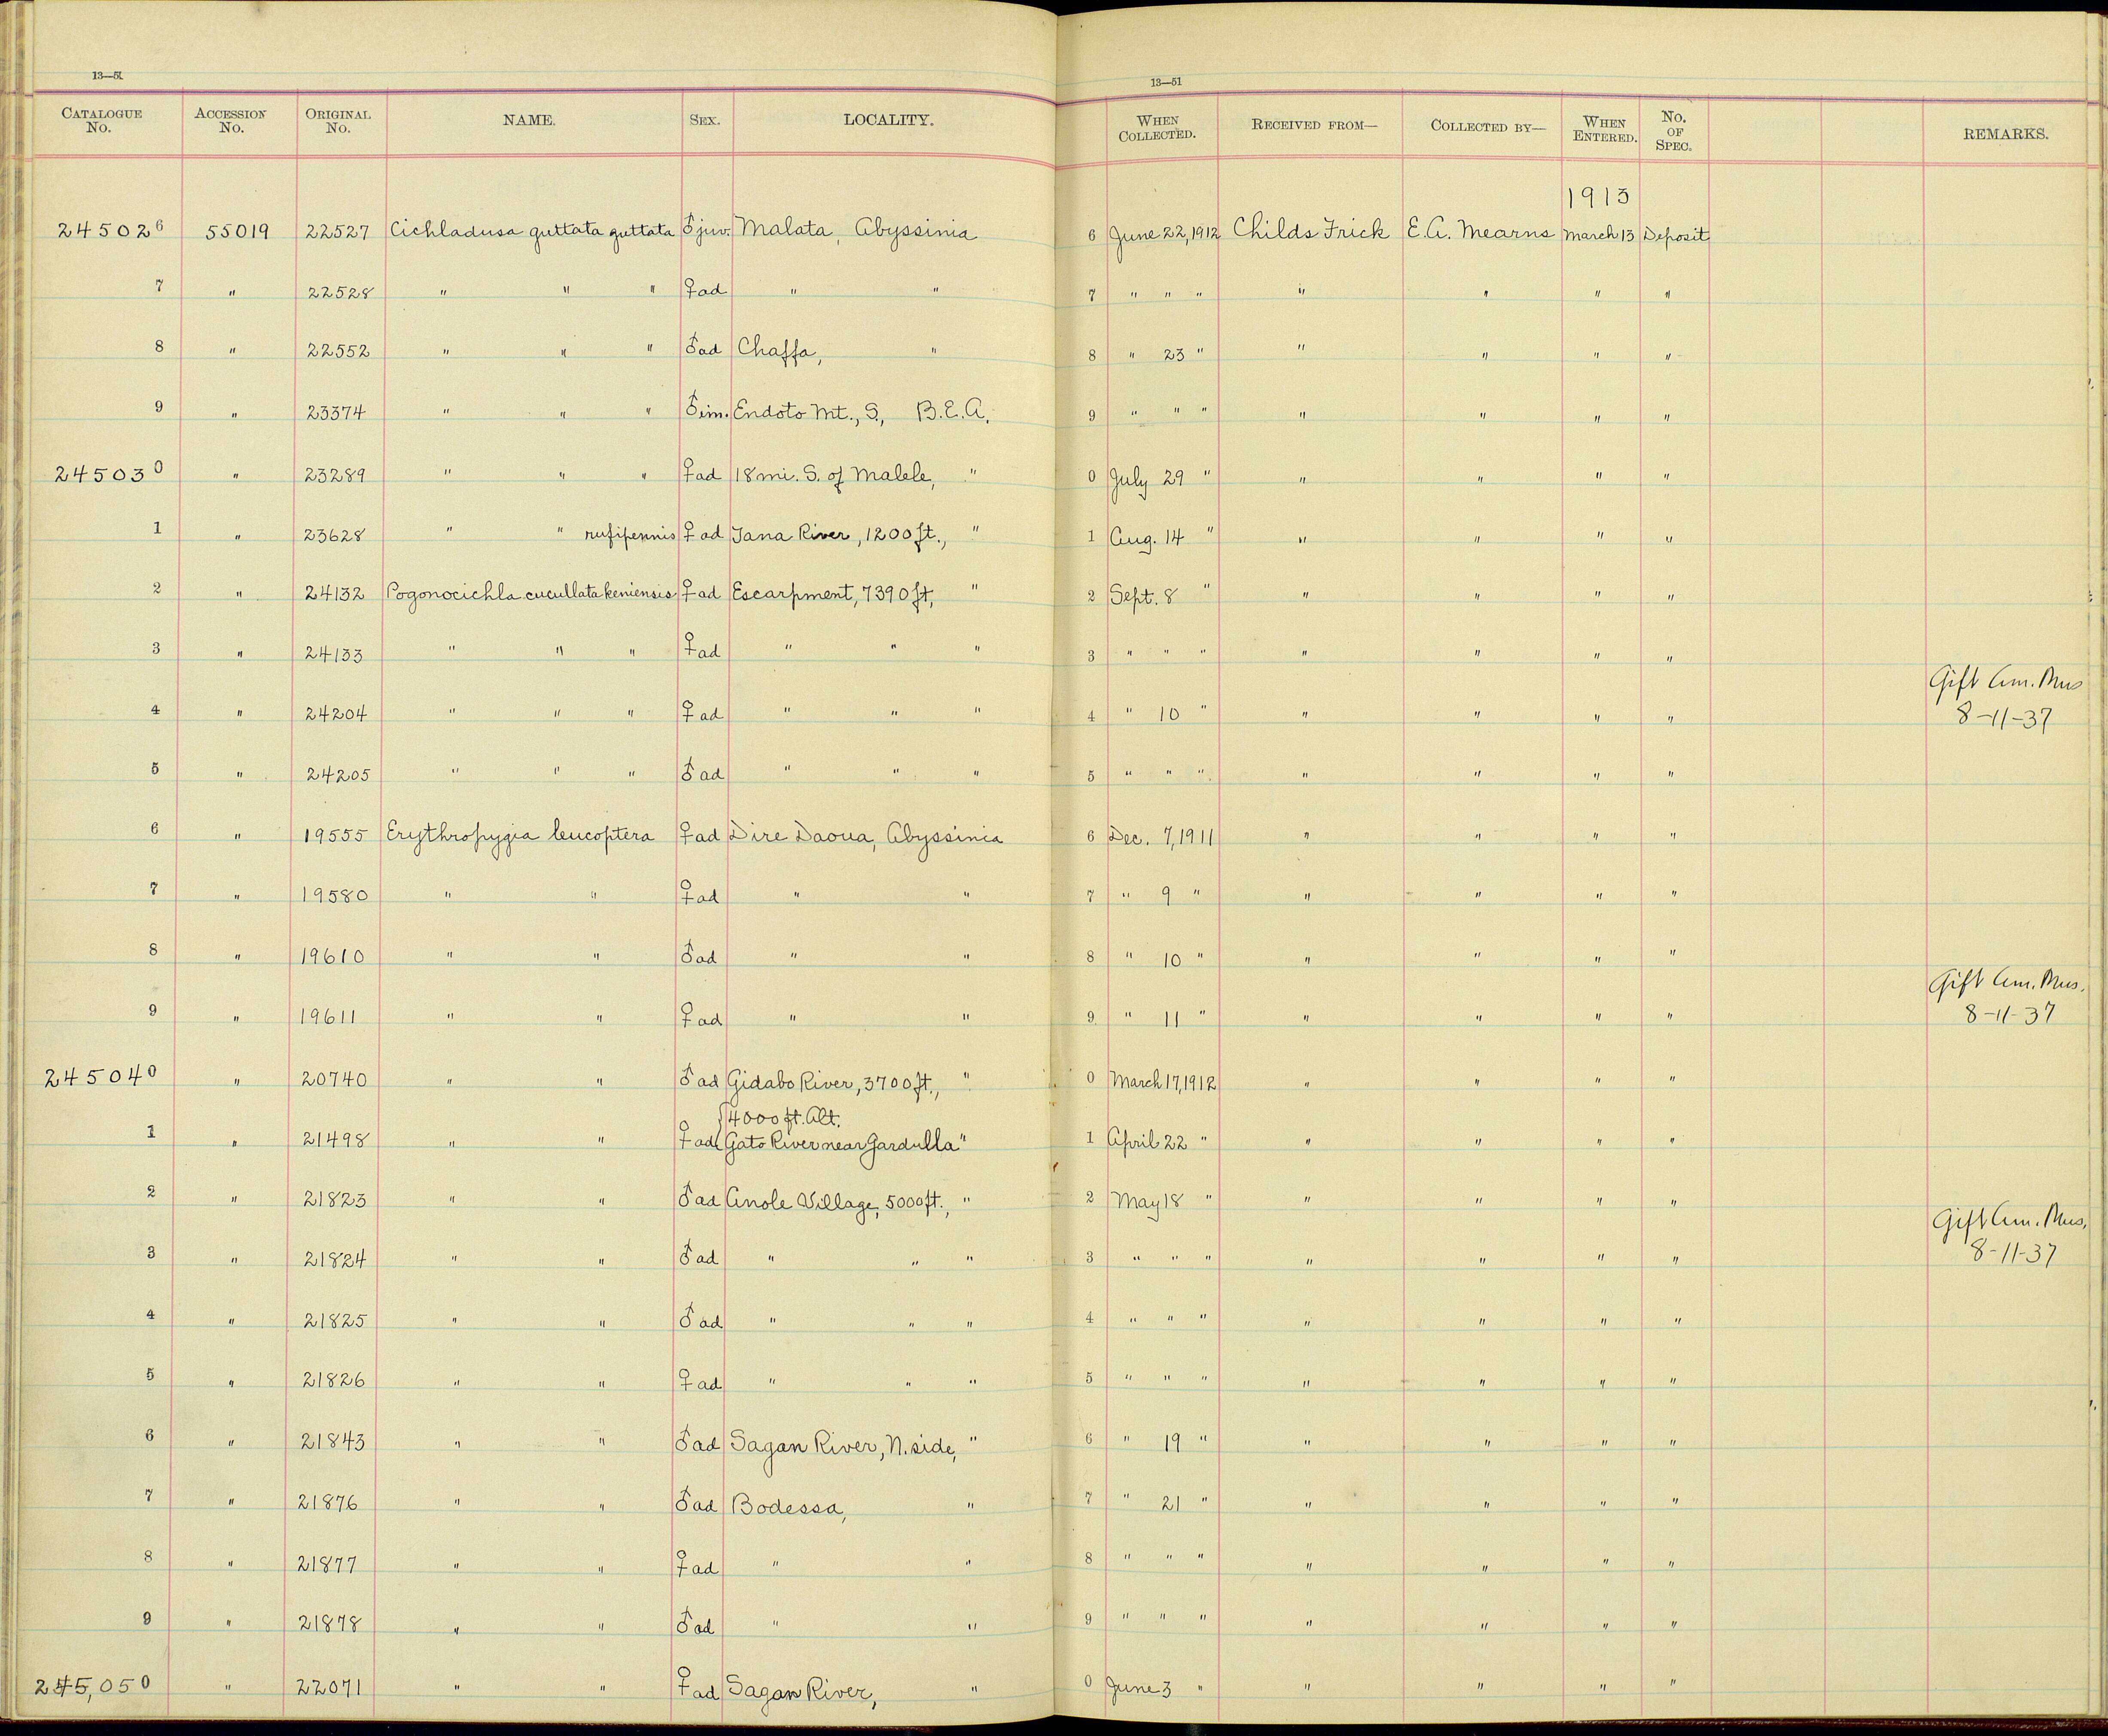 13—51
13—51
CATALOGUE No. ACCESSION No. ORIGINAL No. NAME. SEX. LOCALITY. WHEN COLLECTED. RECEIVED FROM— COLLECTED BY— WHEN ENTERED. No. OF SPEC. REMARKS.
1913
245026 55019 22527 Cichladusa guttata guttata ♂ juv. Malata, Abyssinia 6 June 22, 1912 Childs Frick E.A. Mearns March 13 Deposit
7 " 22528 " " " ♀ ad " " 7 " " " " " " "
8 " 22552 " " " ♂ ad Chaffa, " 8 " 23 " " " " "
9 " 23374 " " " ♂ im. Endoto Mt., S., B.E.A. 9 " " " " " " "
245030 " 23289 " " " ♀ ad 18 mi. S. of Malele, " 0 July 29 " " " " "
1 " 23628 " " rufipennis ♀ ad Tana River, 1200 ft., " 1 Aug. 14 " " " " "
2 " 24132 Pogonocichla cucullata keniensis ♀ ad Escarpment, 7390 ft, " 2 Sept. 8 " " " " "
3 " 24133 " " " ♀ ad " " " 3 " " " " " " "
Gift Am. Mus
4 " 24204 " " " ♀ ad " " " 4 " 10 " " " " " 8-11-37
5 " 24205 " " " ♂ ad " " " 5 " " " " " " "
6 " 19555 Erythropygia leucoptera ♀ ad Dire Daoua, Abyssinia 6 Dec. 7, 1911 " " " "
7 " 19580 " " ♀ ad " " 7 " 9 " " " " "
8 " 19610 " " ♂ ad " " 8 " 10 " " " " "
Gift Am. Mus.
9 " 19611 " " ♀ ad " " 9 " 11 " " " " " 8-11-37
245040 " 20740 " " ♂ ad Gidabo River, 3700 ft., " 0 March 17, 1912 " " " "
4000 ft. Alt.
1 " 21498 " " ♀ ad Gato River near Gardulla " 1 April 22 " " " " "
2 " 21823 " " ♂ ad Anole Village, 5000 ft., " 2 May 18 " " " " "
Gift Am. Mus.
3 " 21824 " " ♂ ad " " " 3 " " " " " " " 8-11-37
4 " 21825 " " ♂ ad " " " 4 " " " " " " "
5 " 21826 " " ♀ ad " " " 5 " " " " " " "
6 " 21843 " " ♂ ad Sagan River, N. side, " 6 " 19 " " " " "
7 " 21876 " " ♂ ad Bodessa, " 7 " 21 " " " " "
8 " 21877 " " ♀ ad " " 8 " " " " " " "
9 " 21878 " " ♂ ad " " 9 " " " " " " "
245,050 " 22071 " " ♀ ad Sagan River, " 0 June 3 " " " " "